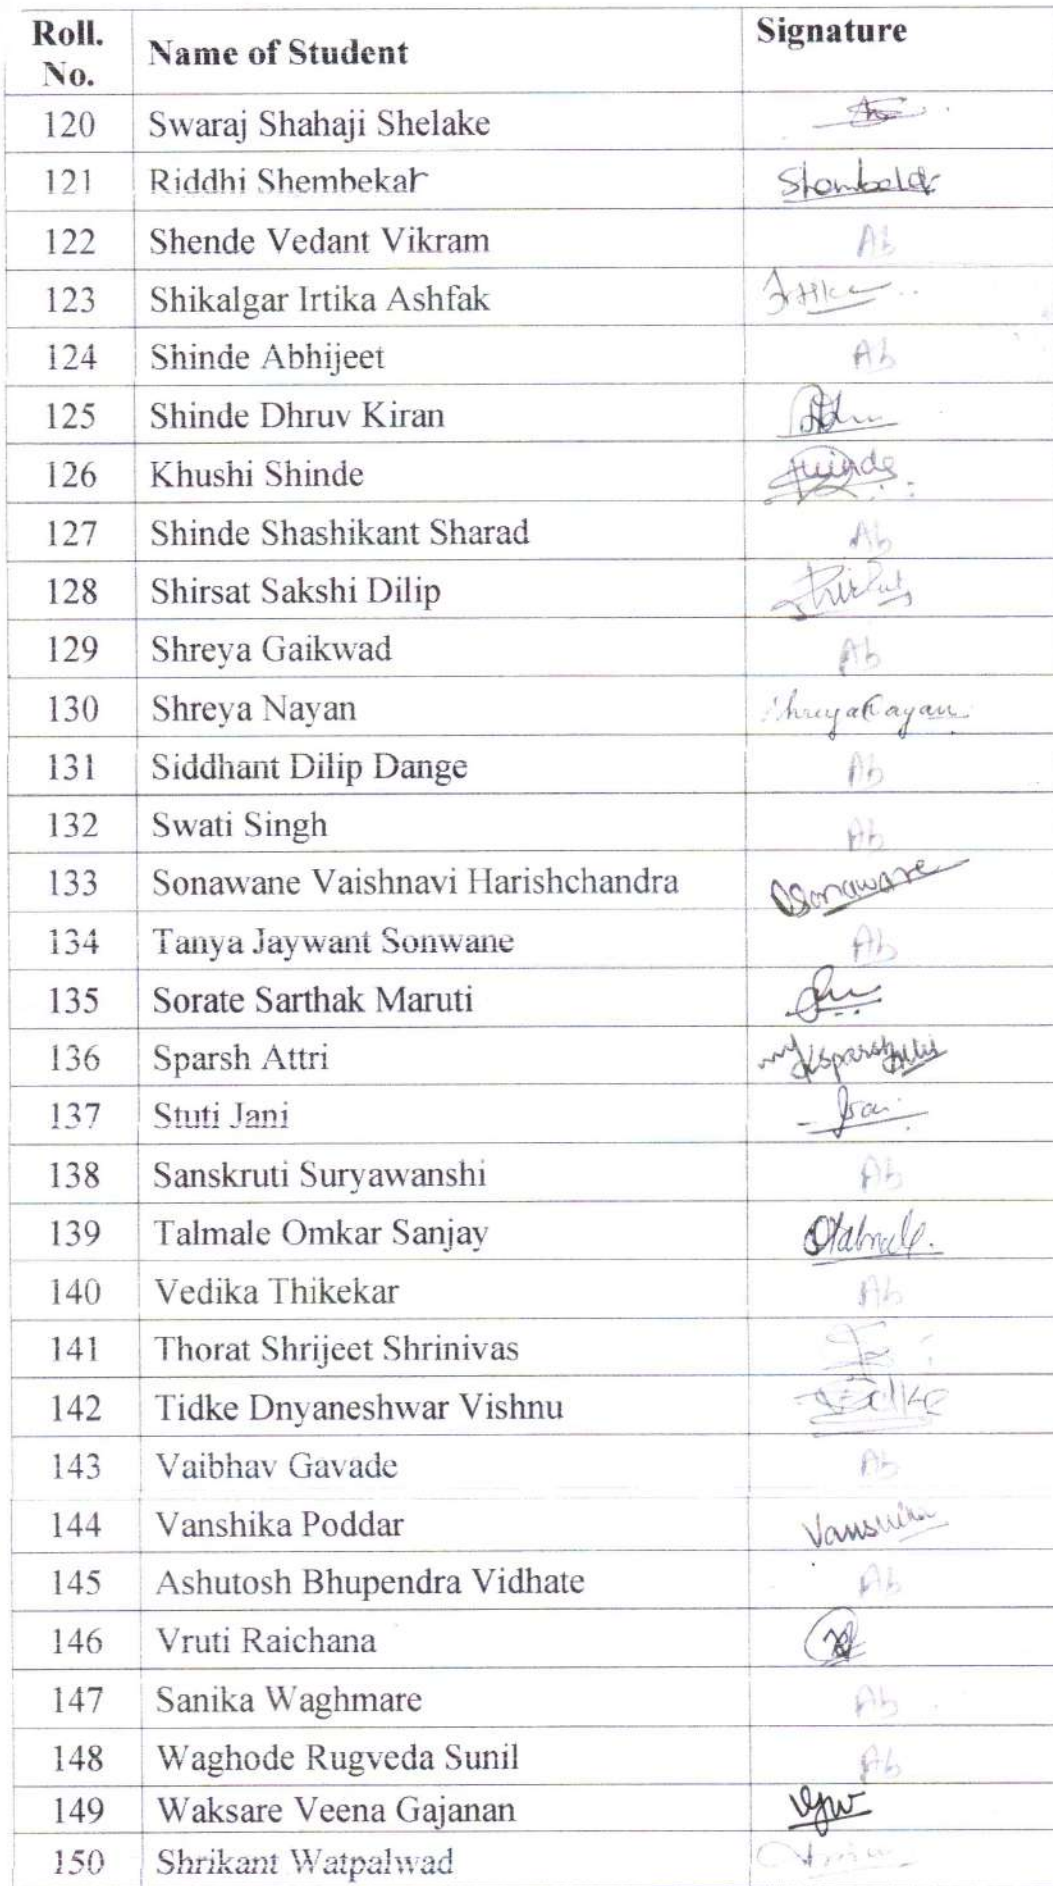 Roll. No. Name of Student Signature
120 Swaraj Shahaji Shelake
121 Riddhi Shembekar
122 Shende Vedant Vikram Ab
123 Shikalgar Irtika Ashfak
124 Shinde Abhijeet Ab
125 Shinde Dhruv Kiran
126 Khushi Shinde
127 Shinde Shashikant Sharad Ab
128 Shirsat Sakshi Dilip
129 Shreya Gaikwad Ab
130 Shreya Nayan
131 Siddhant Dilip Dange Ab
132 Swati Singh Ab
133 Sonawane Vaishnavi Harishchandra
134 Tanya Jaywant Sonwane Ab
135 Sorate Sarthak Maruti
136 Sparsh Attri
137 Stuti Jani
138 Sanskruti Suryawanshi Ab
139 Talmale Omkar Sanjay
140 Vedika Thikekar Ab
141 Thorat Shrijeet Shrinivas
142 Tidke Dnyaneshwar Vishnu
143 Vaibhav Gavade Ab
144 Vanshika Poddar Vanshika
145 Ashutosh Bhupendra Vidhate Ab
146 Vruti Raichana
147 Sanika Waghmare Ab
148 Waghode Rugveda Sunil Ab
149 Waksare Veena Gajanan
150 Shrikant Watpalwad